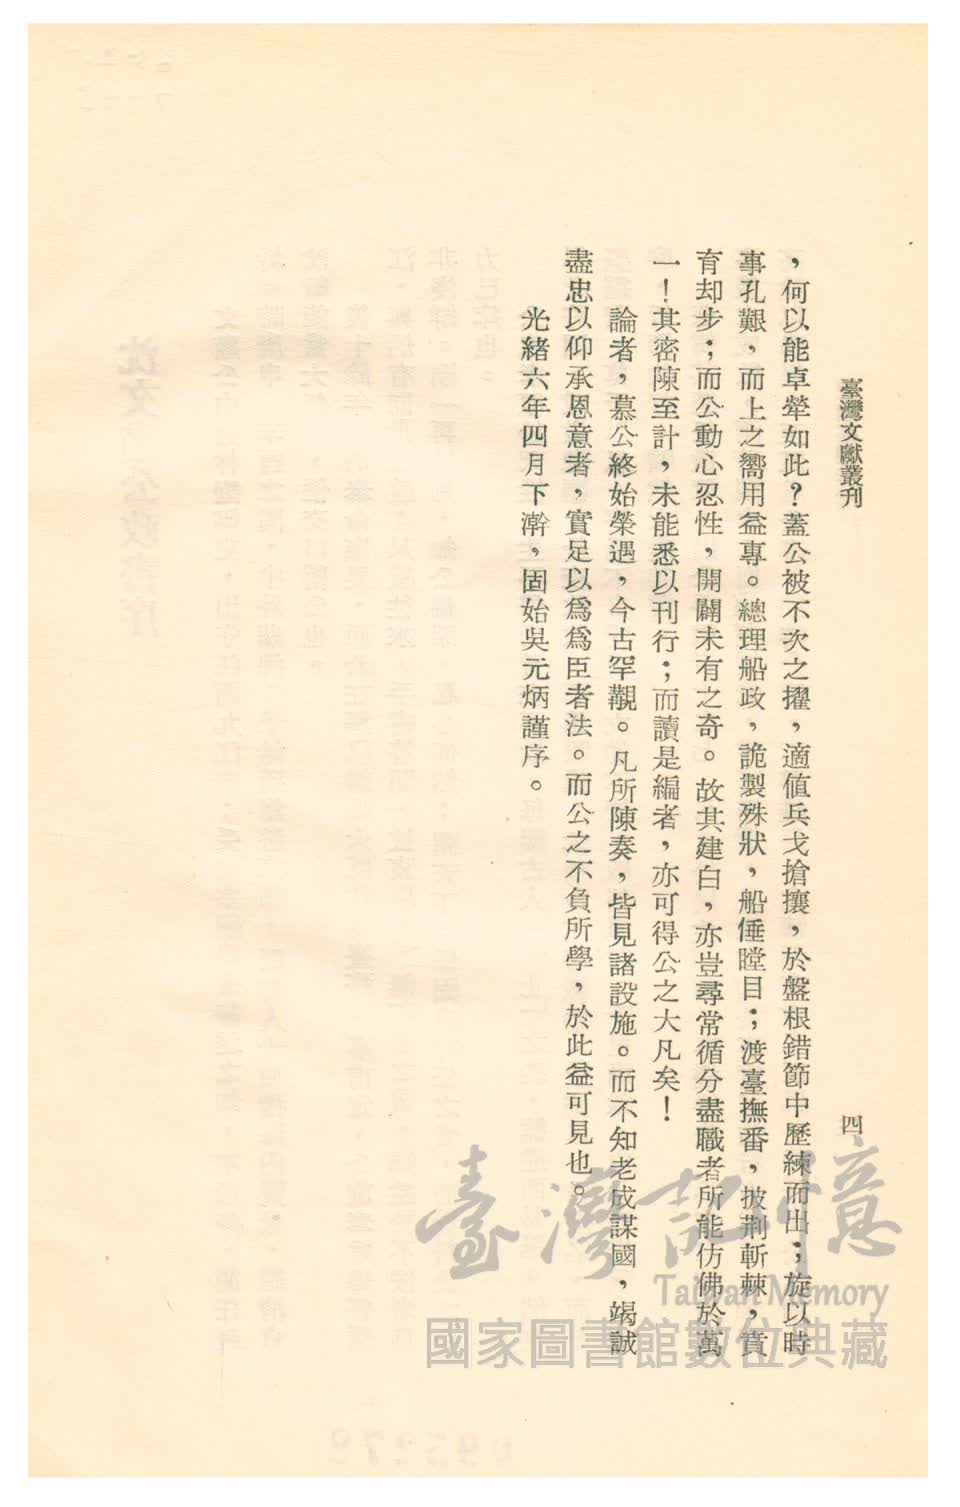 臺灣文獻叢刊
四
，何以能卓犖如此？蓋公被不次之擢，適值兵戈搶攘，於盤根錯節中歷練而出；旋以時
事孔艱，而上之嚮用益專。總理船政，詭製殊狀，船倕瞠目；渡臺撫番，披荆斬棘，賁
育却步；而公動心忍性，開闢未有之奇。故其建白，亦豈尋常循分盡職者所能仿佛於萬
一！其密陳至計，未能悉以刊行；而讀是編者，亦可得公之大凡矣！
論者，慕公終始榮遇，今古罕覯。凡所陳奏，皆見諸設施。而不知老成謀國，竭誠
盡忠以仰承恩意者，實足以爲爲臣者法。而公之不負所學，於此益可見也。
光緒六年四月下澣，固始吳元炳謹序。
臺灣記憶
Taiwan Memory
國家圖書館數位典藏